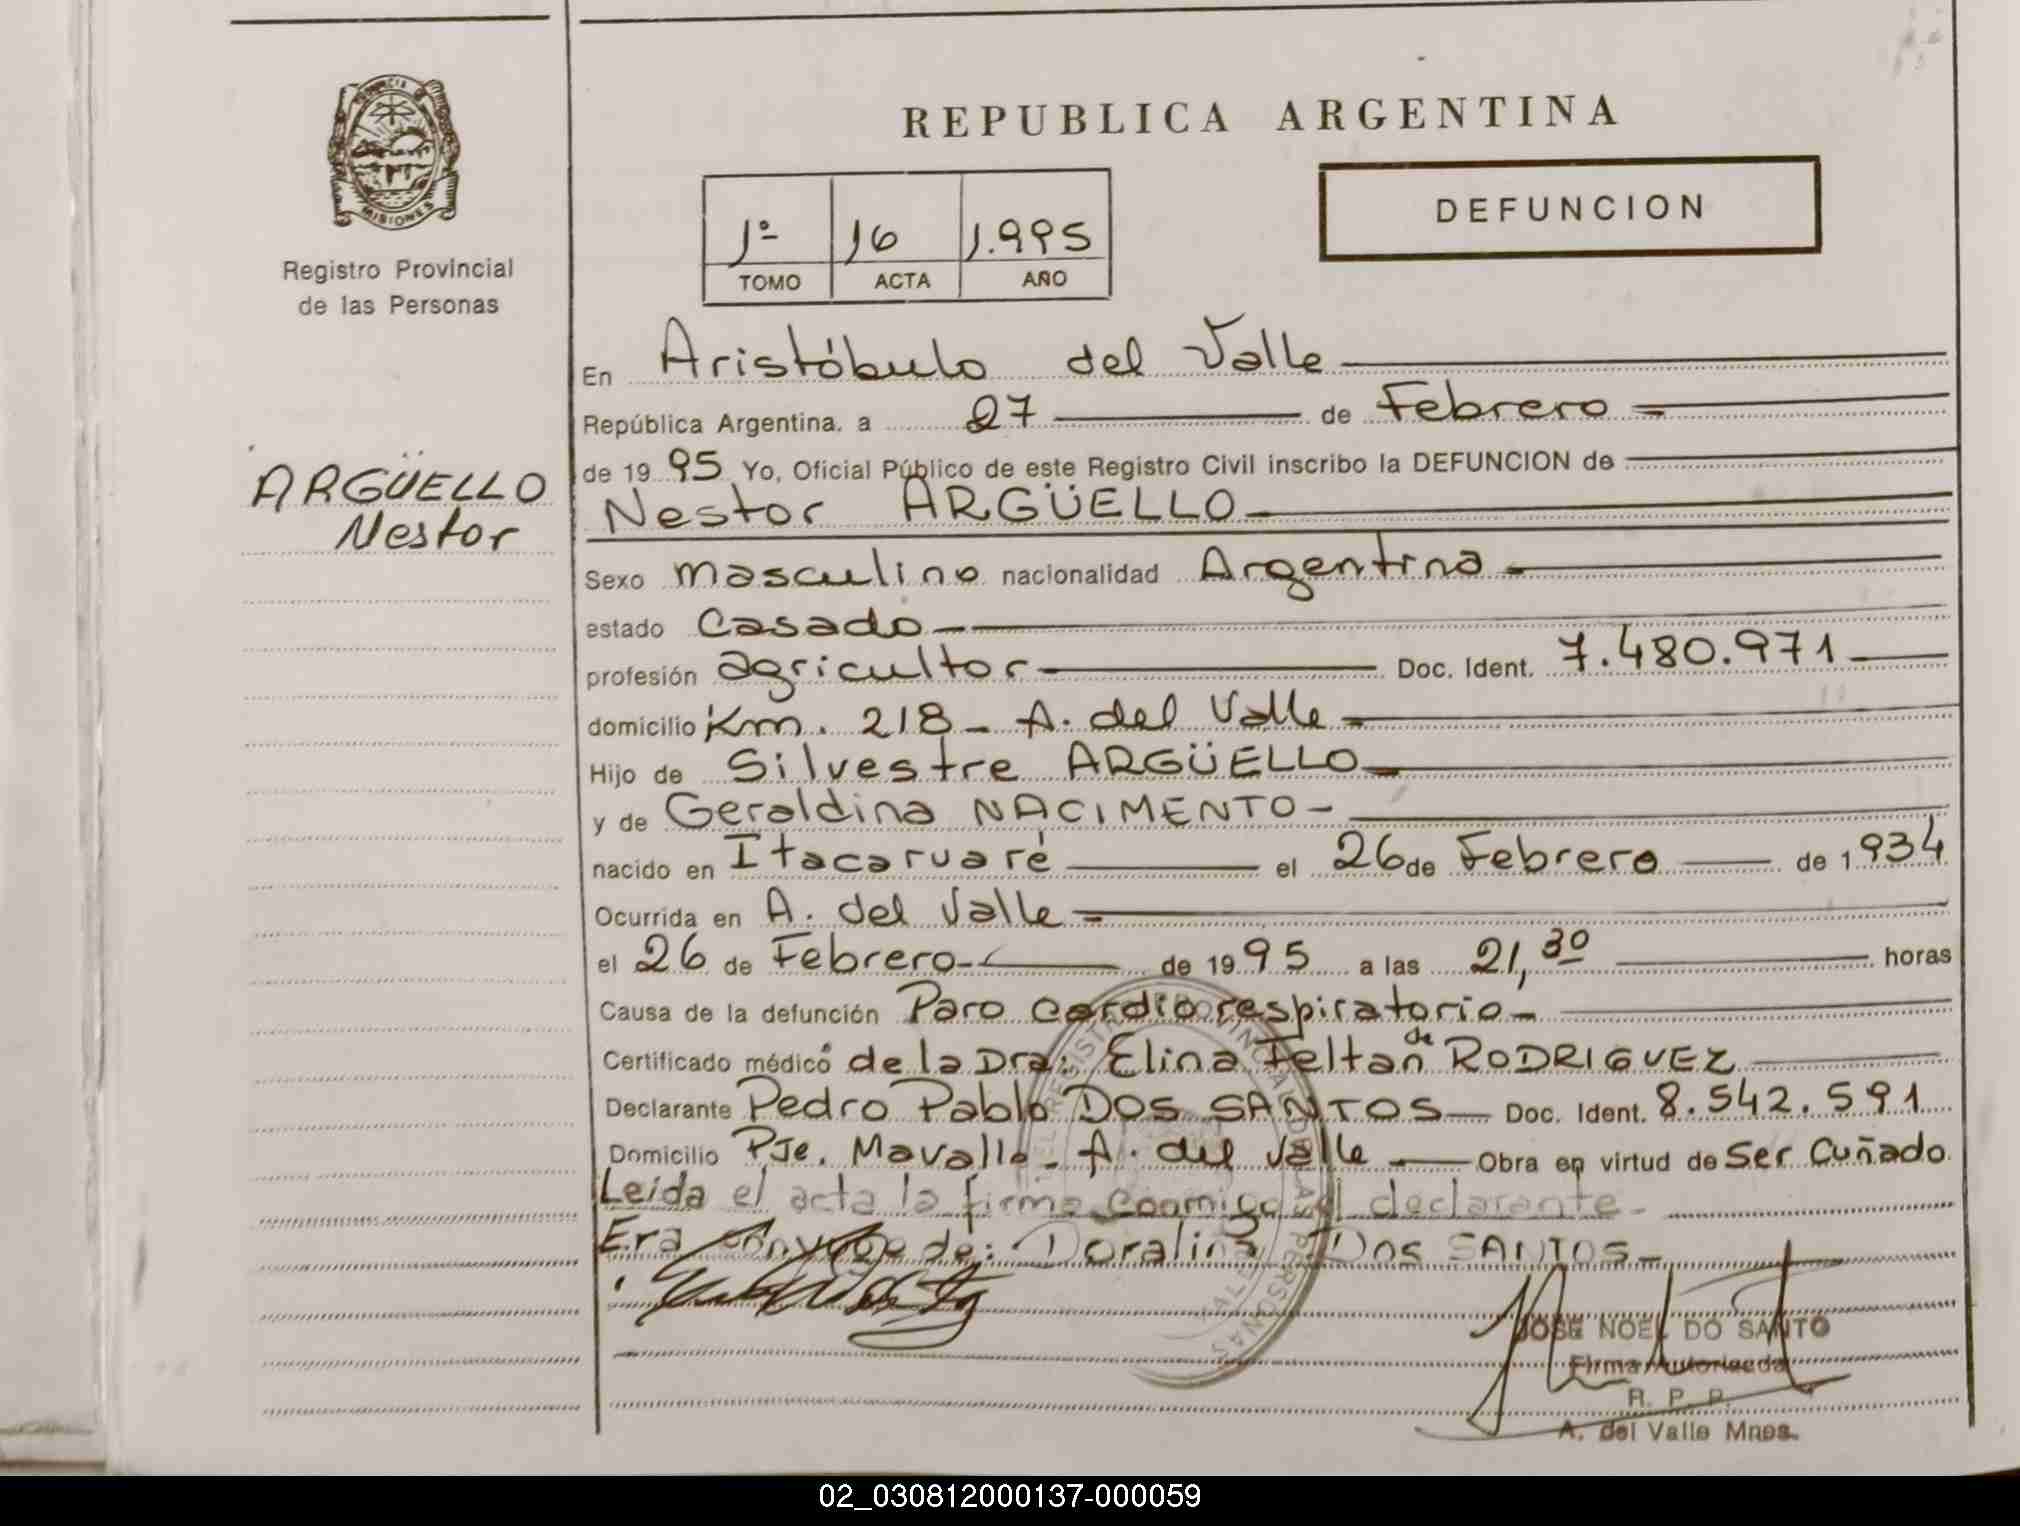 REPUBLICA ARGENTINA
PROVINCIA MISIONES
Registro Provincial
de las Personas
1º 16 1.995
TOMO ACTA AÑO
DEFUNCION
ARGÜELLO
Nestor
En Aristóbulo del Valle
República Argentina, a 27 de Febrero
de 1995 Yo, Oficial Público de este Registro Civil inscribo la DEFUNCION de
Nestor ARGÜELLO
Sexo masculino nacionalidad Argentina
estado Casado
profesión agricultor Doc. Ident. 7.480.971
domicilio Km. 218 - A. del Valle
Hijo de Silvestre ARGÜELLO
y de Geraldina NACIMENTO
nacido en Itacaruaré el 26 de Febrero de 1934
Ocurrida en A. del Valle
el 26 de Febrero de 1995 a las 21,30 horas
Causa de la defunción Paro cardio respiratorio
Certificado médico de la Dra: Elina Feltan de RODRIGUEZ
Declarante Pedro Pablo DOS SANTOS Doc. Ident. 8.542.591
Domicilio Pje. Mavalle - A. del Valle Obra en virtud de Ser Cuñado
Leida el acta la firma conmigo el declarante.
Era conyuge de: Doralina Dos SANTOS
JOSE NOEL DO SANTO
Firma Autorizada
R. P. P.
A. del Valle Mnes.
02_030812000137-000059